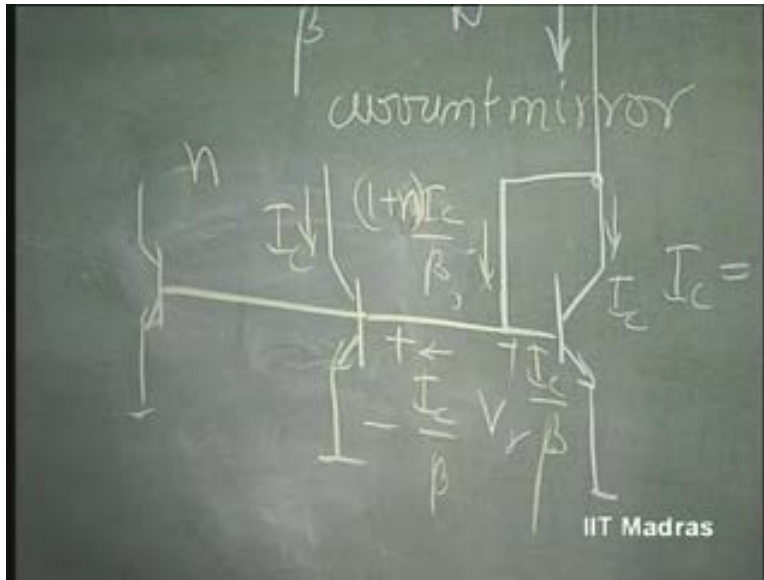 β
current mirror
n
I_c
(1+n)I_c
β
I_c
I_c =
+
+
I_c
β
I_c
β
-
V_r
IIT Madras